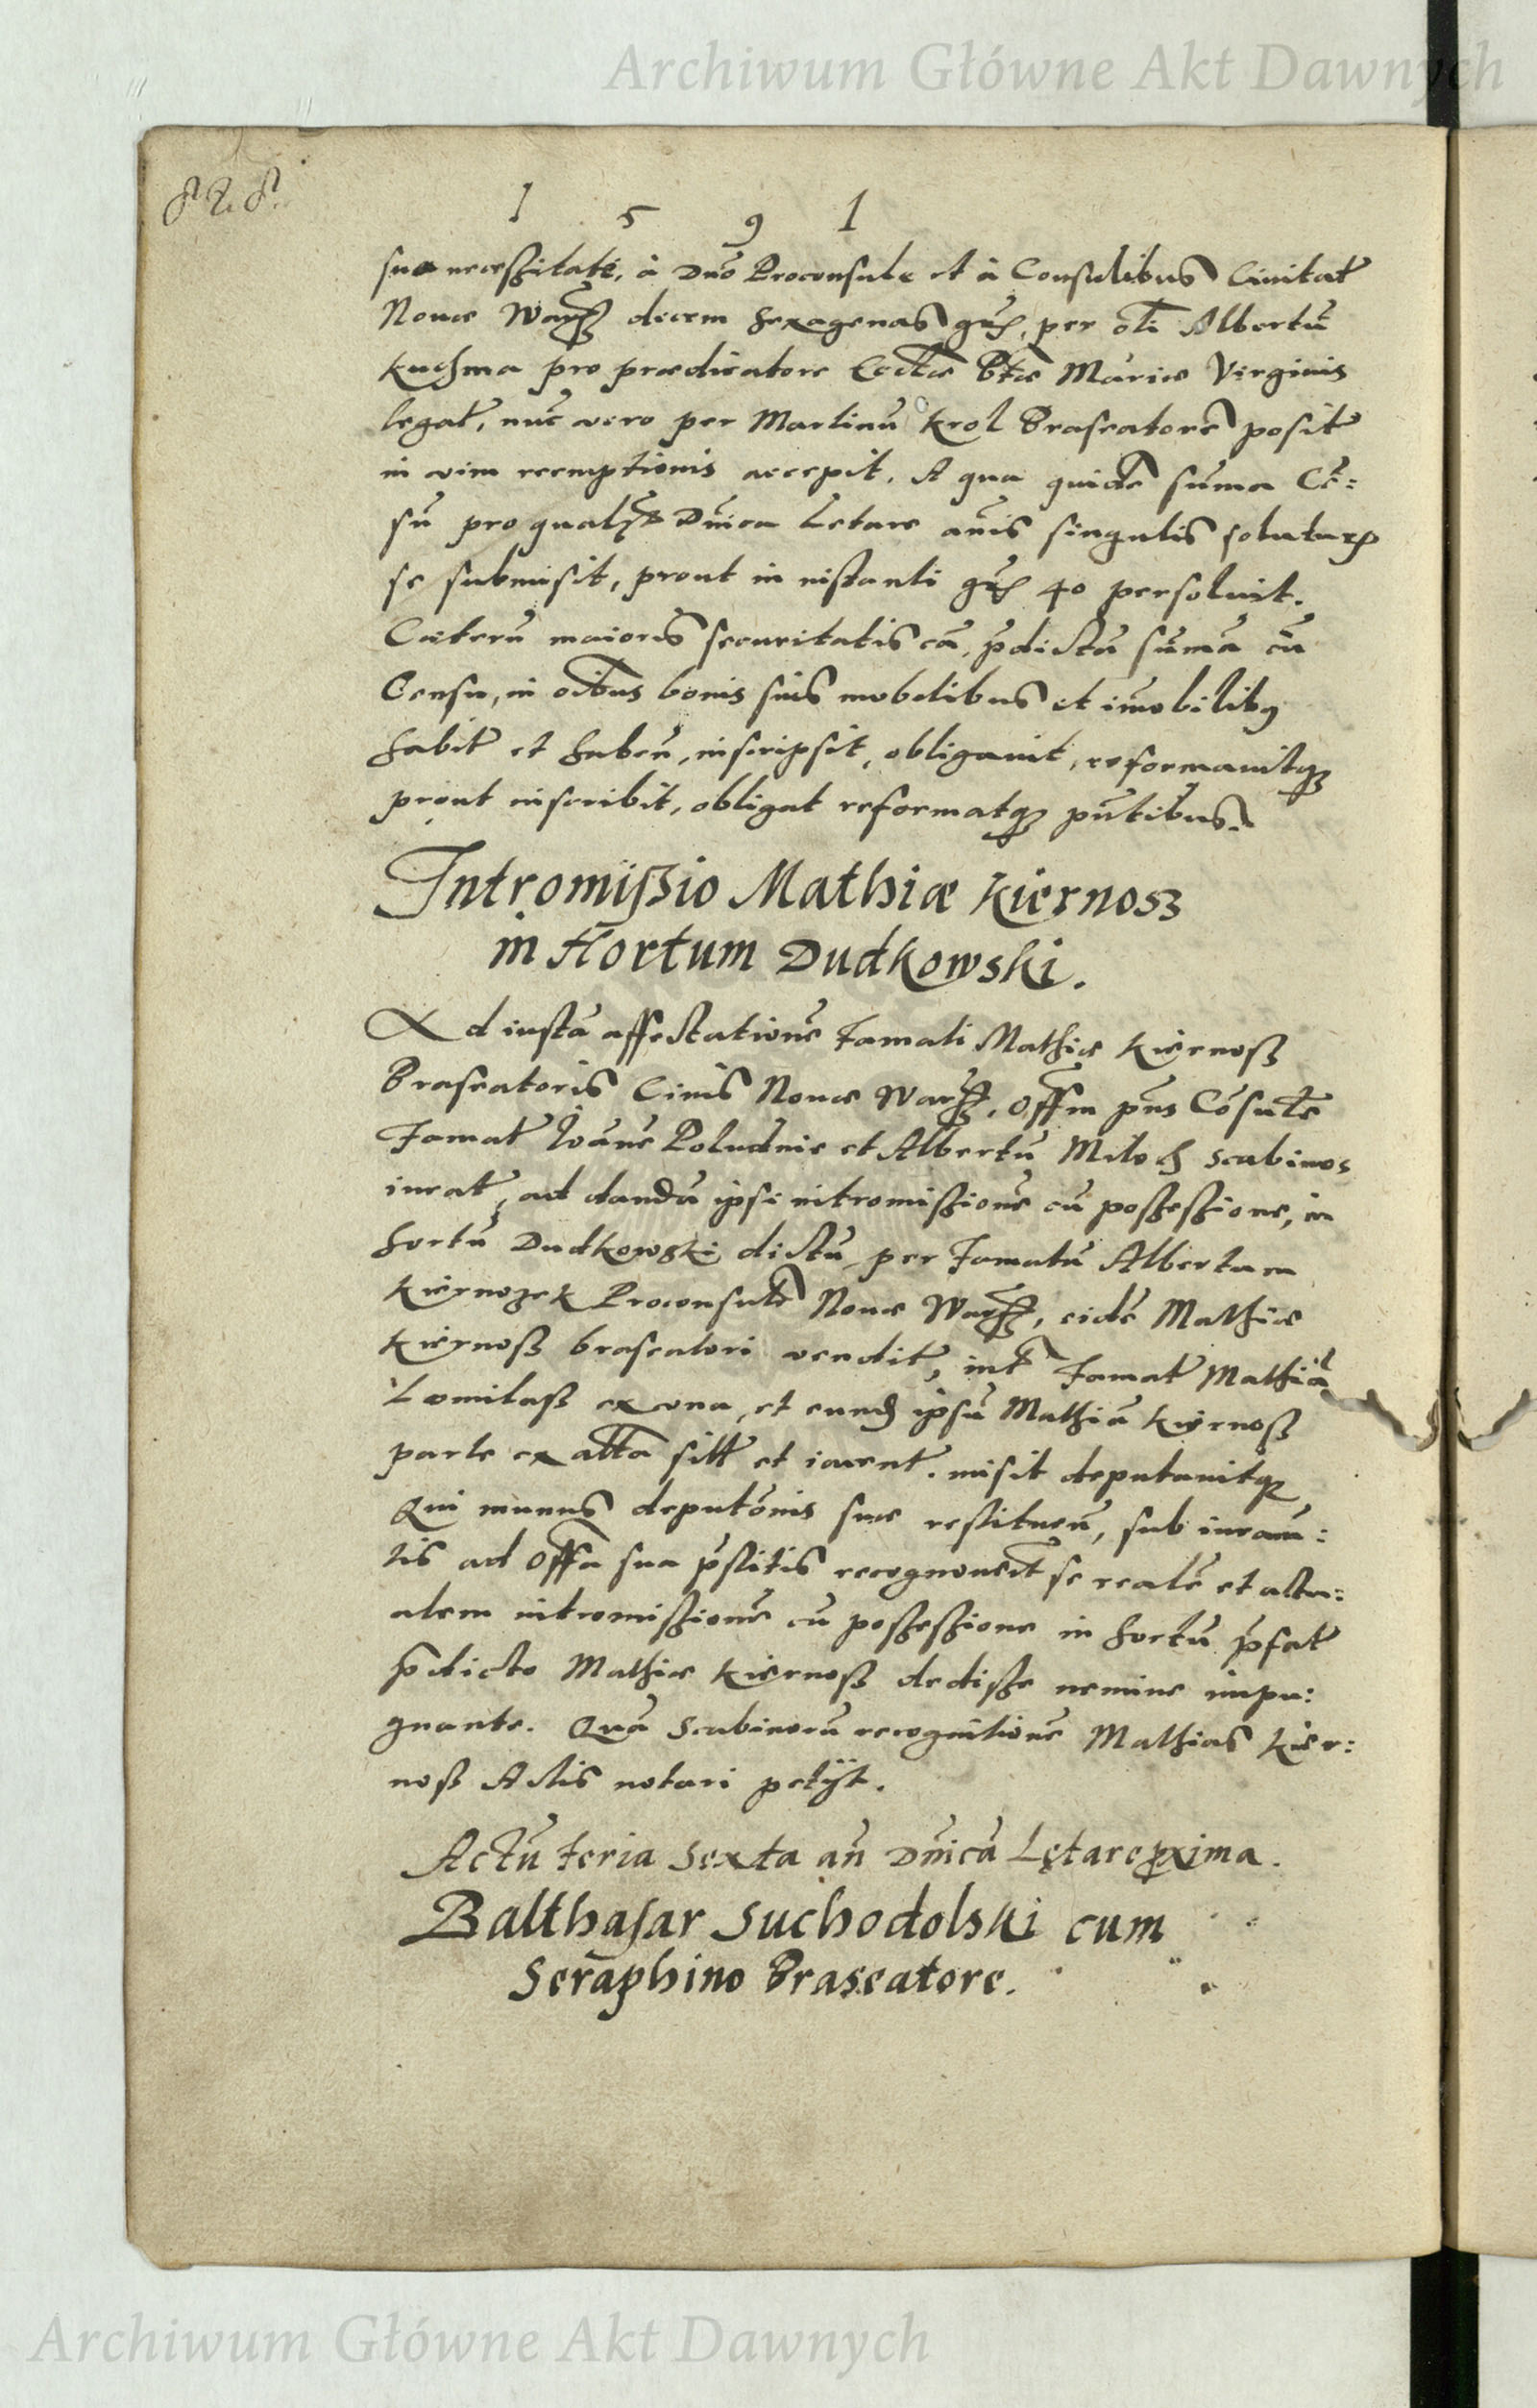 Archiwum Główne Akt Dawnych
828.
1 5 9 1
sua necesʒitate, à Dno Proconsule et à Consulibus Ciuitat
Nouæ Warß decem sexagenas, per oli Albertū
Kuchma pro prædicatore Ecclæ Btæ Mariæ Virginis
legat, nūc vero per Martinū Krol Braseatorē posit
in vim reemptionis accepit. A qua quidē sūma Cē=
sū pro qualꝫ Dnica Letare anis singulis soluturꝫ
se submisit, prout in instanti 40 persoluit.
Cæterū maioris securitatis cā, p̄dictā sūmā cū
Censu, in oibus bonis suis mobilibus et imobilibꝫ
habit et haben, inscripsit, obligauit, reformauitqꝫ
prout inscribit, obligat reformatqꝫ pn̄tibus.
Intromißio Mathiæ Kiernosz
in Hortum Dudkowski.
Ad iustā affectationē Famati Mathiæ Kiernoß
Braseatoris Ciuis Nouæ Warß, Offm pns Cōsulē
Famat Ioānē Poludnie et Albertū Miloch scabinos
iurat, ad dandū ipsi intromißionē cū poßeßione, in
hortū Dudkowski dictū per Famatū Albertum
Kiernozek Proconsulē Nouæ Warß, eidē Mathiæ
Kiernoß braseatori vendit, int Famat Mathiā
Lomilaß ex vna, et eundē ipsū Mathiā Kiernoß
parte ex altā sitt et iacent. misit deputauitqꝫ
Qui munus deputōnis suæ restituen, sub iuramē=
tis ad Offa sua p̄stitis recognouert se realē et actu=
alem intromißionē cū poßeßione in hortū p̄fat
p̄dicto Mathiæ Kiernoß dediße nemine impu=
gnante. Quā scabinorū recognitionē Mathias Kier=
noß Actis notari petÿt.
Actū feria Sexta an Dnicā Lętare p̱xima.
Balthasar Suchodolski cum
Seraphino Braseatore.
Archiwum Główne Akt Dawnych